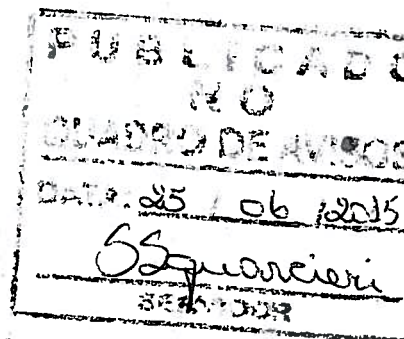 PUBLICADO
NO
QUADRO DE AVISOS
DATA 25 / 06 / 2015
SSquarcieri
SERVIDOR